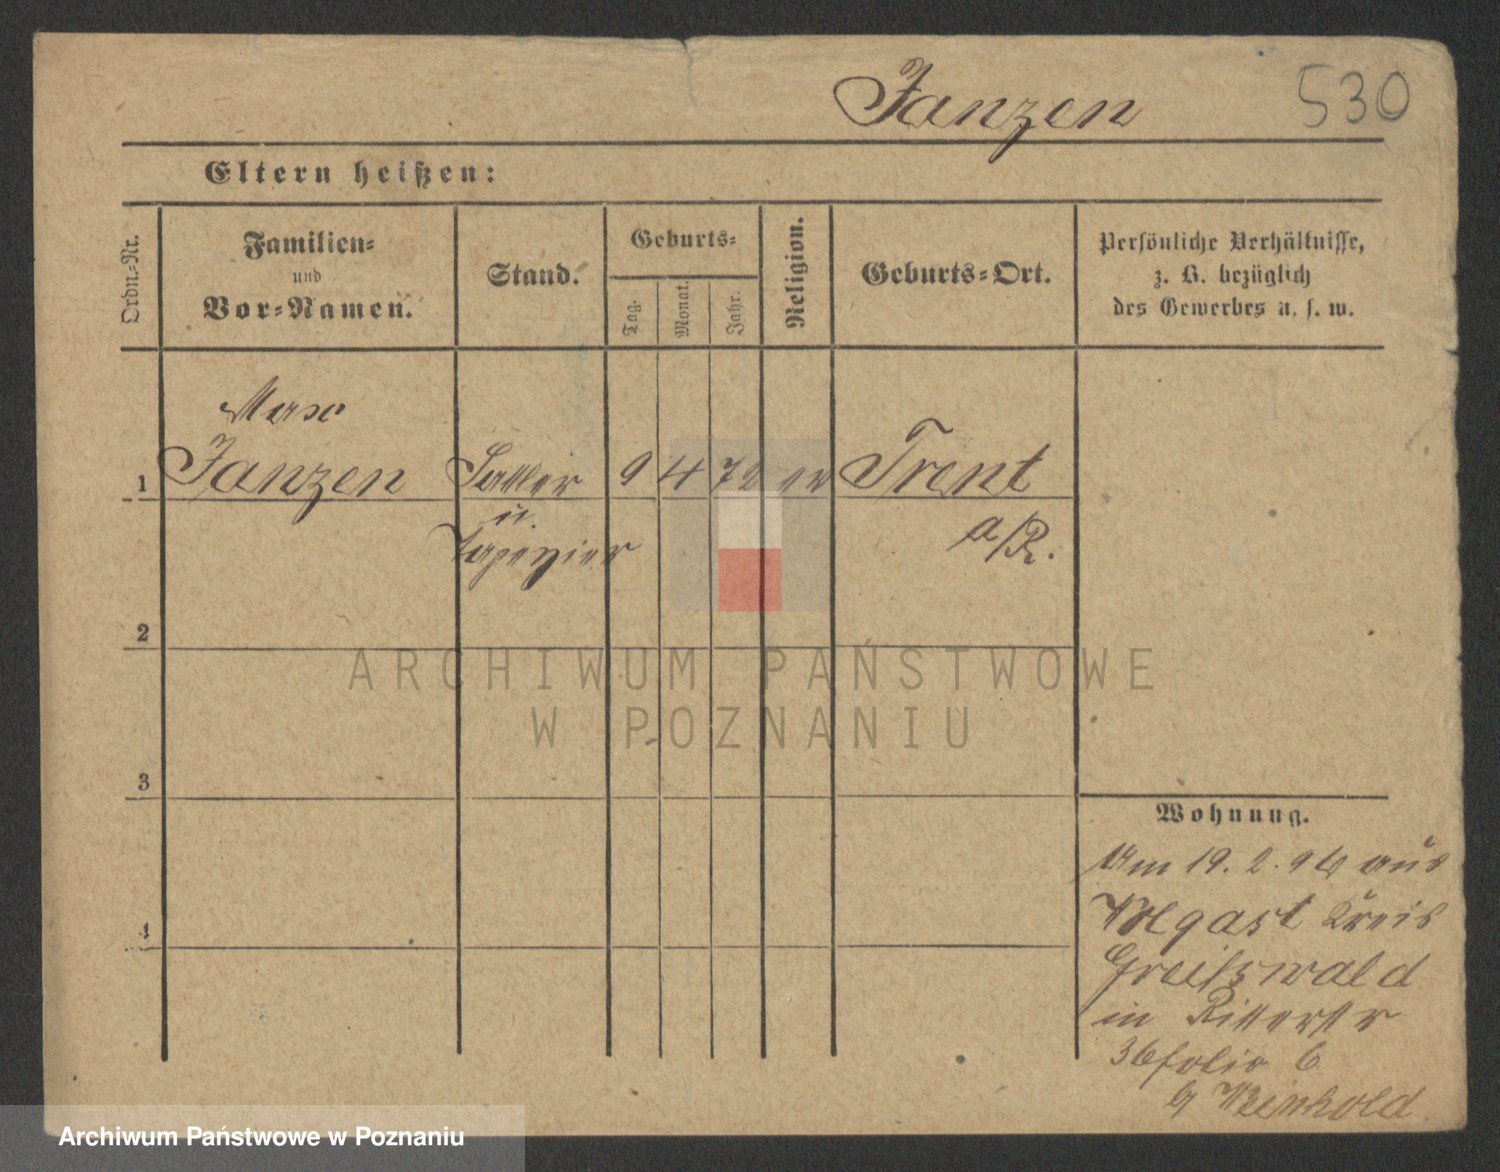 Janzen 530
Eltern heißen:
Ordn.-Nr.
Familien-
und
Vor-Namen.
Stand.
Geburts-
Tag.
Monat.
Jahr.
Religion.
Geburts-Ort.
Persönliche Verhältnisse,
z. B. bezüglich
des Gewerbes u. s. w.
Max
1 Janzen Sattler 9 4 72 ev Trent
u. a/R.
Tapezier
2
3
4
ARCHIWUM PAŃSTWOWE
W POZNANIU
Wohnung.
Am 19. 2. 96 aus
Wolgast Kreis
Greifswald
in Ritterstr
36 folio 6
b/ Weinhold
Archiwum Państwowe w Poznaniu